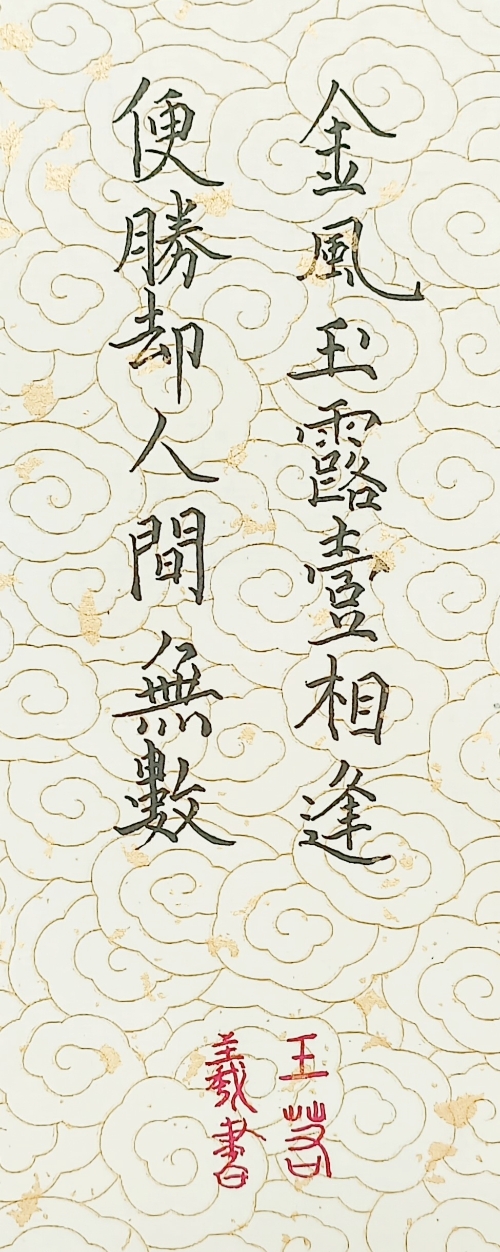 金風玉露壹相逢
便勝却人間無數
王
羲書